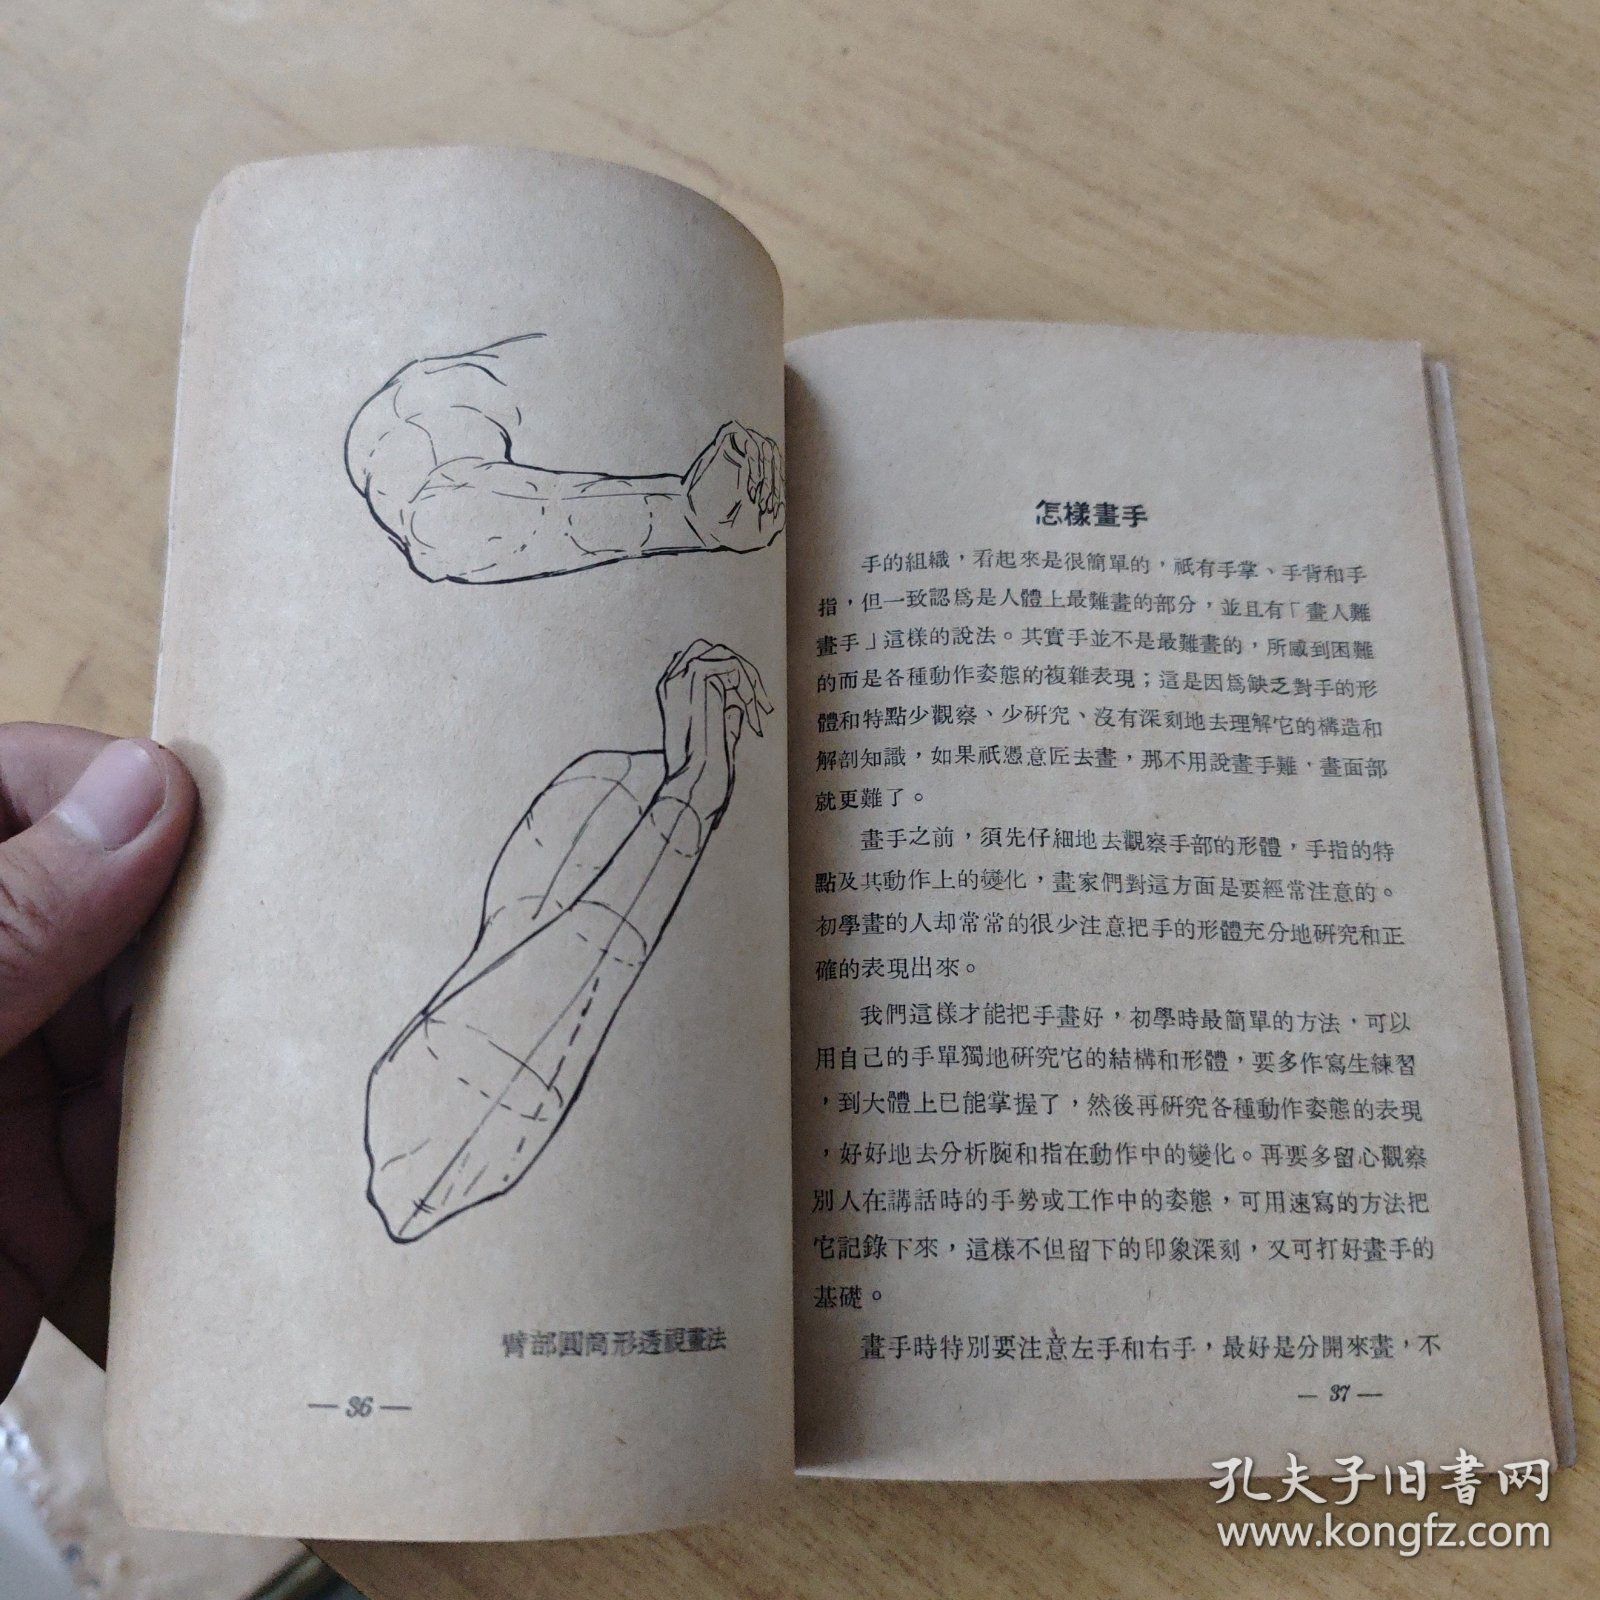 臂部圓筒形透視畫法
— 36 —
怎樣畫手
手的組織，看起來是很簡單的，祇有手掌、手背和手
指，但一致認爲是人體上最難畫的部分，並且有「畫人難
畫手」這樣的說法。其實手並不是最難畫的，所感到困難
的而是各種動作姿態的複雜表現；這是因爲缺乏對手的形
體和特點少觀察、少研究、沒有深刻地去理解它的構造和
解剖知識，如果祇憑意匠去畫，那不用說畫手難，畫面部
就更難了。
畫手之前，須先仔細地去觀察手部的形體，手指的特
點及其動作上的變化，畫家們對這方面是要經常注意的。
初學畫的人却常常的很少注意把手的形體充分地研究和正
確的表現出來。
我們這樣才能把手畫好，初學時最簡單的方法，可以
用自己的手單獨地研究它的結構和形體，要多作寫生練習
，到大體上已能掌握了，然後再研究各種動作姿態的表現
，好好地去分析腕和指在動作中的變化。再要多留心觀察
別人在講話時的手勢或工作中的姿態，可用速寫的方法把
它記錄下來，這樣不但留下的印象深刻，又可打好畫手的
基礎。
畫手時特別要注意左手和右手，最好是分開來畫，不
— 37 —
孔夫子旧書网
www.kongfz.com